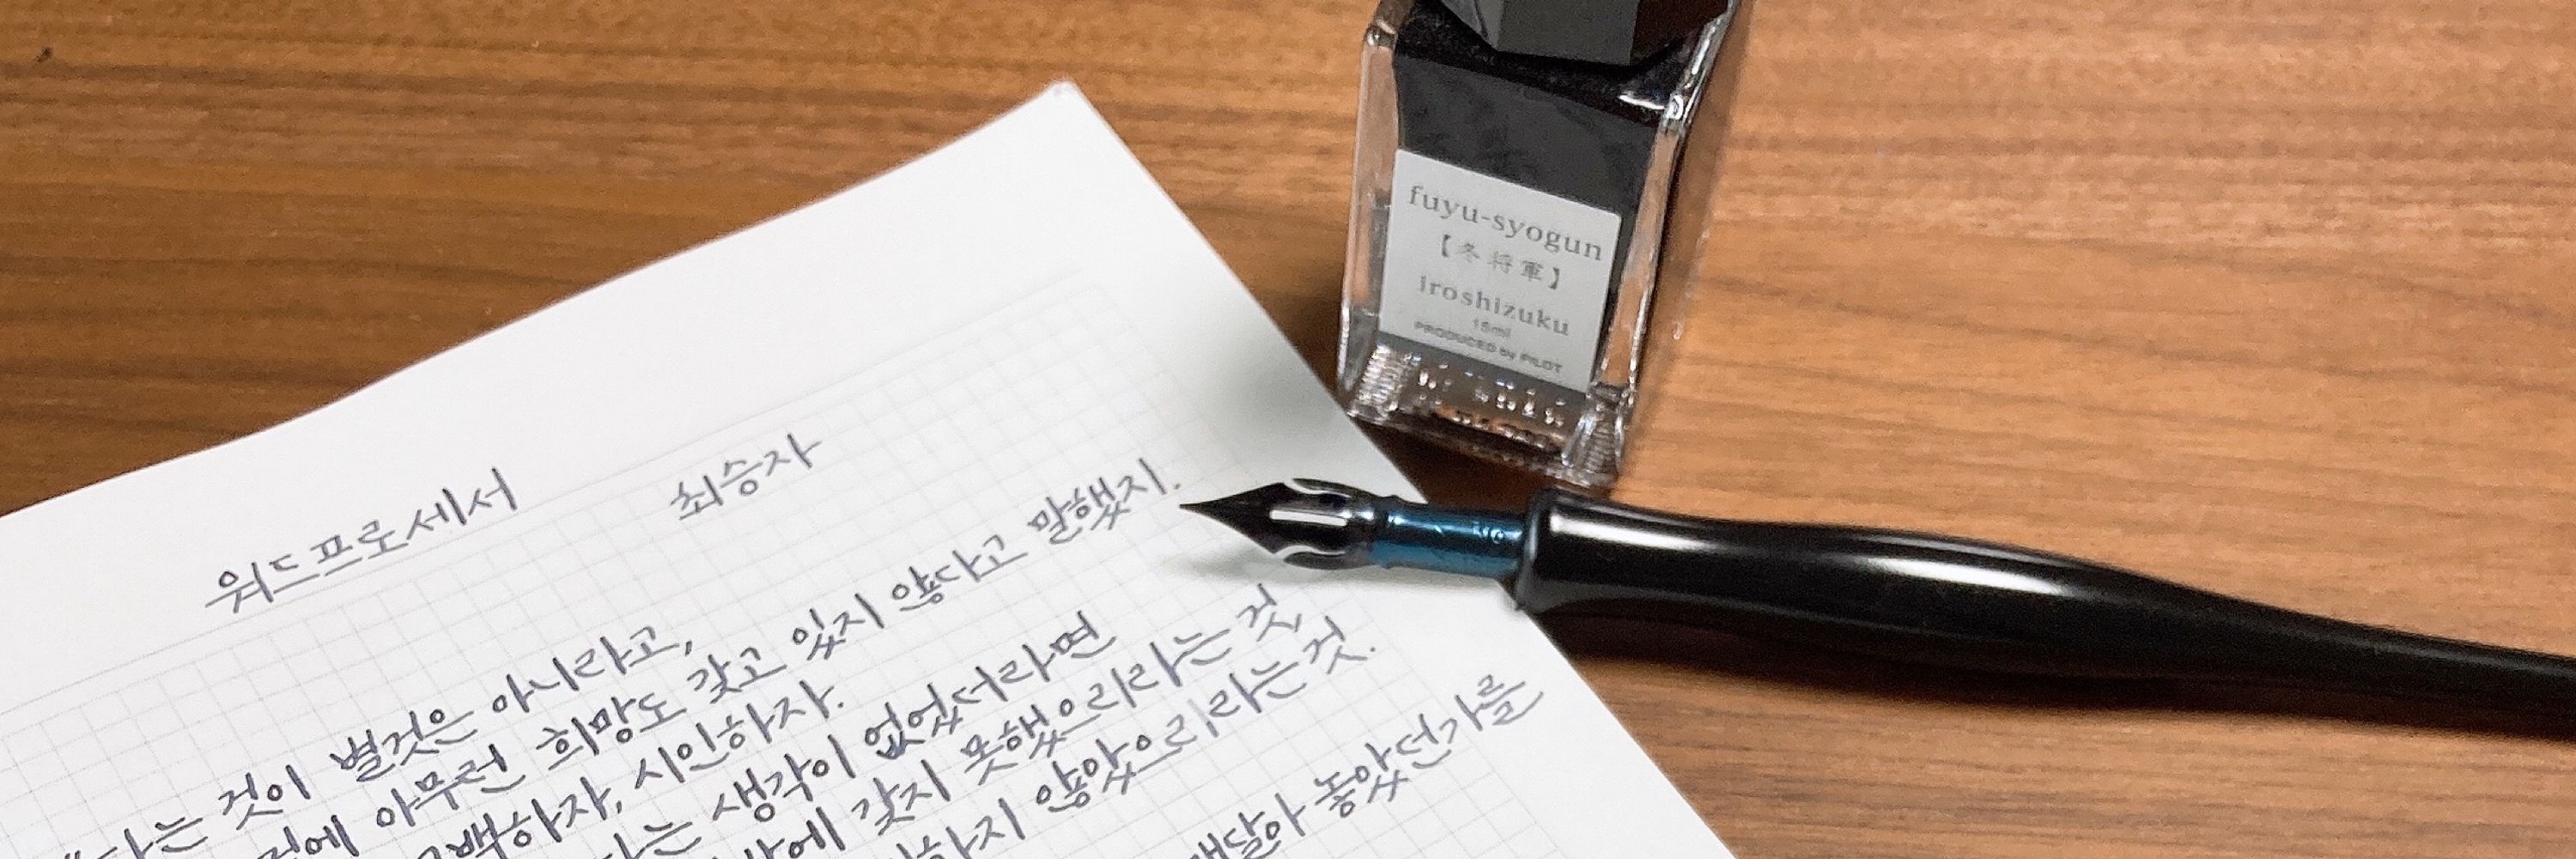 워드프로세서 최승자
다는 것이 별것은 아니라고,
아무런 희망도 갖고 있지 않다고 말했지.
고백하자, 시인하자.
다는 생각이 없었더라면
밖에 갖지 못했으리라는 것,
하지 않았으리라는 것.
매달아 놓았던가를
fuyu-syogun
【冬将軍】
iroshizuku
15ml
PRODUCED by PILOT